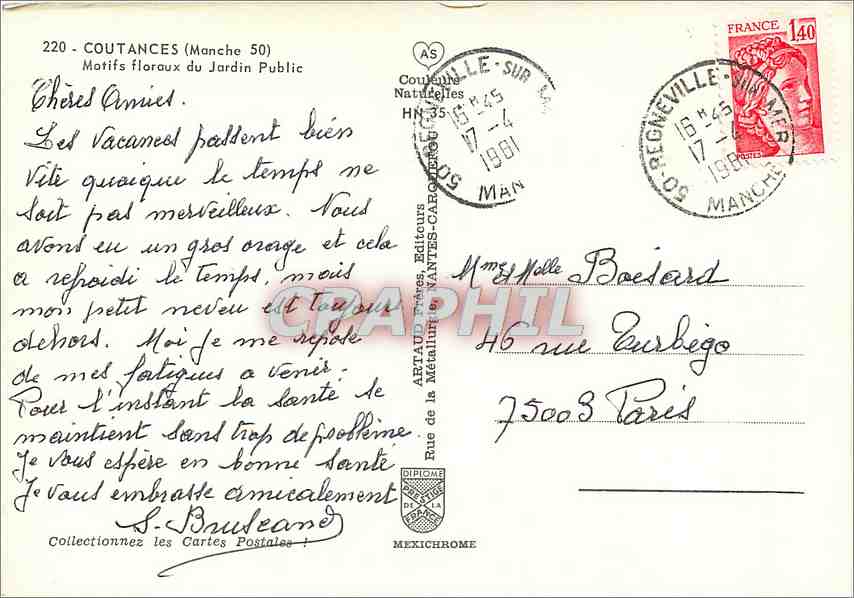 220 - COUTANCES (Manche 50)
Motifs floraux du Jardin Public
Chères Amies.
Les vacances passent bien
vite quoique le temps ne
soit pas merveilleux. Nous
avons eu un gros orage et cela
a refroidi le temps, mais
mon petit neveu est toujours
dehors. Moi je me repose
de mes fatigues a venir.
Pour l'instant la santé se
maintient sans trop de problème.
Je vous espère en bonne santé
Je vous embrasse amicalement
Collectionnez les Cartes Postales !
AS
Couleurs
Naturelles
HN 35
ARTAUD Frères, Editeurs
Rue de la Métallurgie NANTES-CARQUEFOU
DIPLOME
PRESTIGE
DE LA
FRANCE
MEXICHROME
50-REGNEVILLE-SUR
MAN
16 H 45
17 - 4
1981
50-REGNEVILLE-SUR MER
MANCHE
16 H 45
17 - 4
1981
FRANCE 1,40
POSTES
Mme et Melle Boesard
46 rue Turbigo
75003 Paris
CPAPHIL